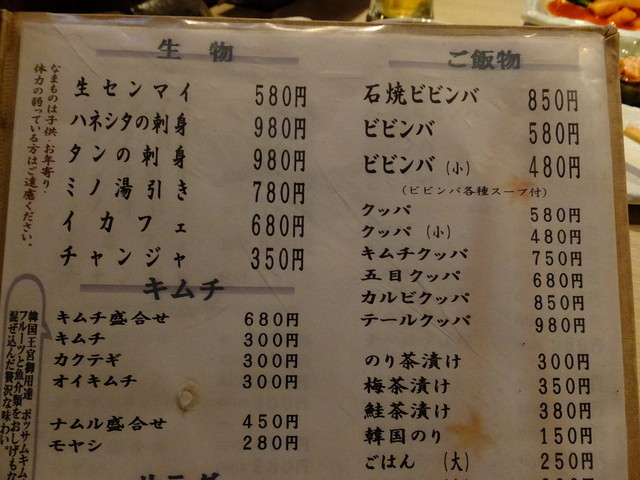 生物
生センマイ 580円
ハネシタの刺身 980円
タンの刺身 980円
ミノ湯引き 780円
イカフェ 680円
チャンジャ 350円
なまものは子供・お年寄り・
体力の弱っている方はご遠慮ください。
キムチ
キムチ盛合せ 680円
キムチ 300円
カクテギ 300円
オイキムチ 300円
ナムル盛合せ 450円
モヤシ 280円
韓国王宮御用達 ポッサムキム
フルーツと魚介類をおしげもな
混ぜ込んだ贅沢な味わい。
ご飯物
石焼ビビンバ 850円
ビビンバ 580円
ビビンバ(小) 480円
(ビビンバ各種スープ付)
クッパ 580円
クッパ(小) 480円
キムチクッパ 750円
五目クッパ 680円
カルビクッパ 850円
テールクッパ 980円
のり茶漬け 300円
梅茶漬け 350円
鮭茶漬け 380円
韓国のり 150円
ごはん(大) 250円